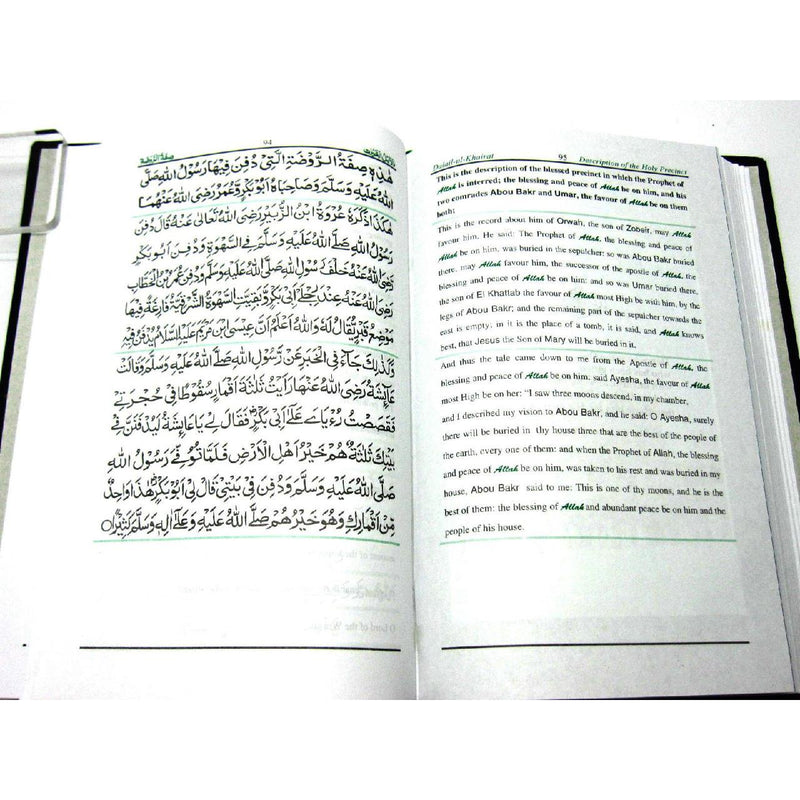 94
صفة الروضة
هٰذِهٖ صِفَةُ الرَّوْضَةِ الَّتِیْ دُفِنَ فِيْهَا رَسُوْلُ اللهِ صَلَّی
اللهُ عَلَيْهِ وَسَلَّمَ وَصَاحِبَاهُ اَبُوْبَكْرٍ وَّعُمَرُ رَضِیَ اللهُ عَنْهُمَا
هٰكَذَا ذَكَرَهٗ عُرْوَةُ ابْنُ الزُّبَيْرِ رَضِیَ اللهُ تَعَالٰی عَنْهُ قَالَ دُفِنَ
رَسُوْلُ اللهِ صَلَّی اللهُ عَلَيْهِ وَسَلَّمَ فِی السَّهْوَةِ وَدُفِنَ اَبُوْ بَكْرٍ
رَضِیَ اللهُ عَنْهُ خَلْفَ رَسُوْلِ اللهِ صَلَّی اللهُ عَلَيْهِ وَسَلَّمَ وَدُفِنَ عُمَرُ بْنُ الْخَطَّابِ
رَضِیَ اللهُ عَنْهُ عِنْدَ رِجْلَیْ اَبِیْ بَكْرٍ وَّبَقِيَتِ السَّهْوَةُ الشَّرْقِيَّةُ فَارِغَةً فِيْهَا
مَوْضِعُ قَبْرٍ يُّقَالُ لَهٗ وَاللهُ اَعْلَمُ اَنَّ عِيْسَی ابْنَ مَرْيَمَ عَلَيْهِ السَّلَامُ يُدْفَنُ فِيْهِ
وَكَذٰلِكَ جَآءَ فِی الْخَبَرِ عَنْ رَّسُوْلِ اللهِ صَلَّی اللهُ عَلَيْهِ وَسَلَّمَ وَقَالَتْ
عَآئِشَةُ رَضِیَ اللهُ عَنْهَا رَاَيْتُ ثَلٰثَةَ اَقْمَارٍ سُقُوْطًا فِیْ حُجْرَتِیْ
فَقَصَصْتُ رُءْيَایَ عَلٰی اَبِیْ بَكْرٍ فَقَالَ لِیْ يَا عَآئِشَةُ لَيُدْفَنَنَّ فِیْ
بَيْتِكِ ثَلٰثَةٌ هُمْ خَيْرُ اَهْلِ الْاَرْضِ فَلَمَّا تُوُفِّیَ رَسُوْلُ اللهِ
صَلَّی اللهُ عَلَيْهِ وَسَلَّمَ وَدُفِنَ فِیْ بَيْتِیْ قَالَ لِیْ اَبُوْبَكْرٍ هٰذَا وَاحِدٌ
مِّنْ اَقْمَارِكِ وَهُوَ خَيْرُهُمْ صَلَّی اللهُ عَلَيْهِ وَعَلٰی اٰلِهٖ وَسَلَّمَ كَثِيْرًا
Dalail-ul-Khairat 95 Description of the Holy Precinct
This is the description of the blessed precinct in which the Prophet of
Allah is interred; the blessing and peace of Allah be on him, and his
two comrades Abou Bakr and Umar, the favour of Allah be on them
both:
This is the record about him of Orwah, the son of Zobeir, may Allah
favour him. He said: The Prophet of Allah, the blessing and peace of
Allah be on him, was buried in the sepulcher; so was Abou Bakr buried
there, may Allah favour him, the successor of the apostle of Allah, the
blessing and peace of Allah be on him: and so was Umar buried there,
the son of El Khattab the favour of Allah most High be with him, by the
legs of Abou Bakr; and the remaining part of the sepulcher towards the
east is empty; in it is the place of a tomb, it is said, and Allah knows
best, that Jesus the Son of Mary will be buried in it.
And thus the tale came down to me from the Apostle of Allah, the
blessing and peace of Allah be on him. said Ayesha, the favour of Allah
most High be on her: "I saw three moons descend, in my chamber,
and I described my vision to Abou Bakr, and he said: O Ayesha, surely
there will be buried in thy house three that are the best of the people of
the earth, every one of them: and when the Prophet of Allah, the blessing
and peace of Allah be on him, was taken to his rest and was buried in my
house, Abou Bakr said to me: This is one of thy moons, and he is the
best of them: the blessing of Allah and abundant peace be on him and the
people of his house.
O Lord of the